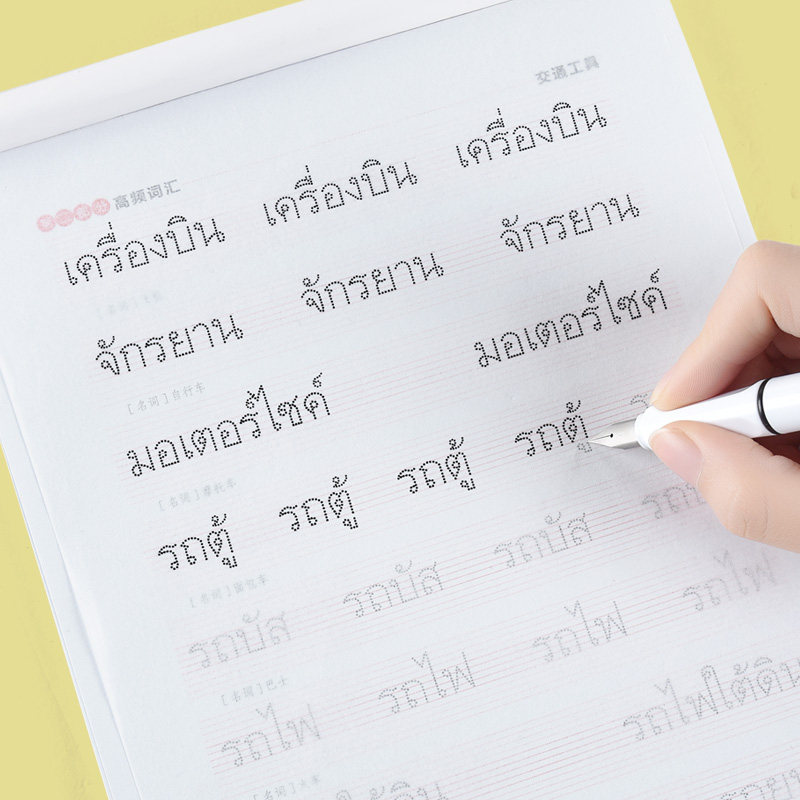 交通工具
第二部分 高频词汇
เครื่องบิน เครื่องบิน เครื่องบิน
[名词] 飞机
จักรยาน จักรยาน จักรยาน
[名词] 自行车
มอเตอร์ไซค์ มอเตอร์ไซค์
[名词] 摩托车
รถตู้ รถตู้ รถตู้
[名词] 面包车
รถบัส รถบัส รถบัส
[名词] 巴士
รถไฟ รถไฟ รถไฟ รถไฟ
[名词] 火车
รถไฟใต้ดิน